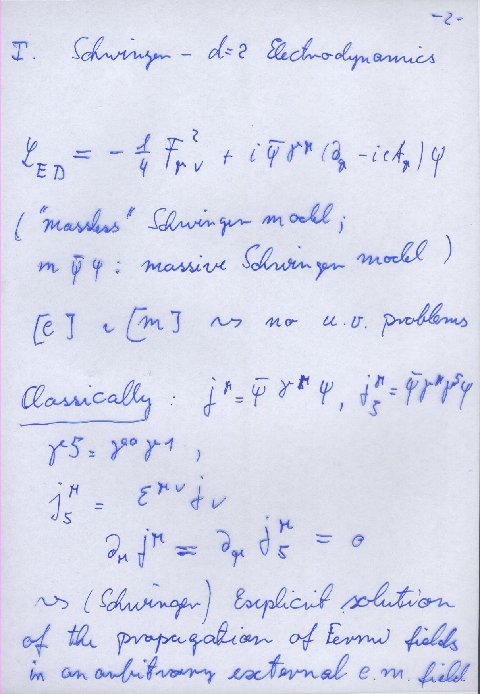 -2-
I. Schwinger - d=2 Electrodynamics
ℒ_ED = - 1/4 F_μν² + i ψ̄ γ^μ (∂_μ - ieA_μ) ψ
("massless" Schwinger model;
m ψ̄ ψ : massive Schwinger model)
[e] ~ [m] ⇝ no u.v. problems
Classically : j^μ = ψ̄ γ^μ ψ, j_5^μ = ψ̄ γ^μ γ^5 ψ
γ5 = γ^0 γ^1 ,
j_5^μ = ε^μν j_ν
∂_μ j^μ = ∂_μ j_5^μ = 0
⇝ (Schwinger) Explicit solution
of the propagation of Fermi fields
in an arbitrary external e.m. field